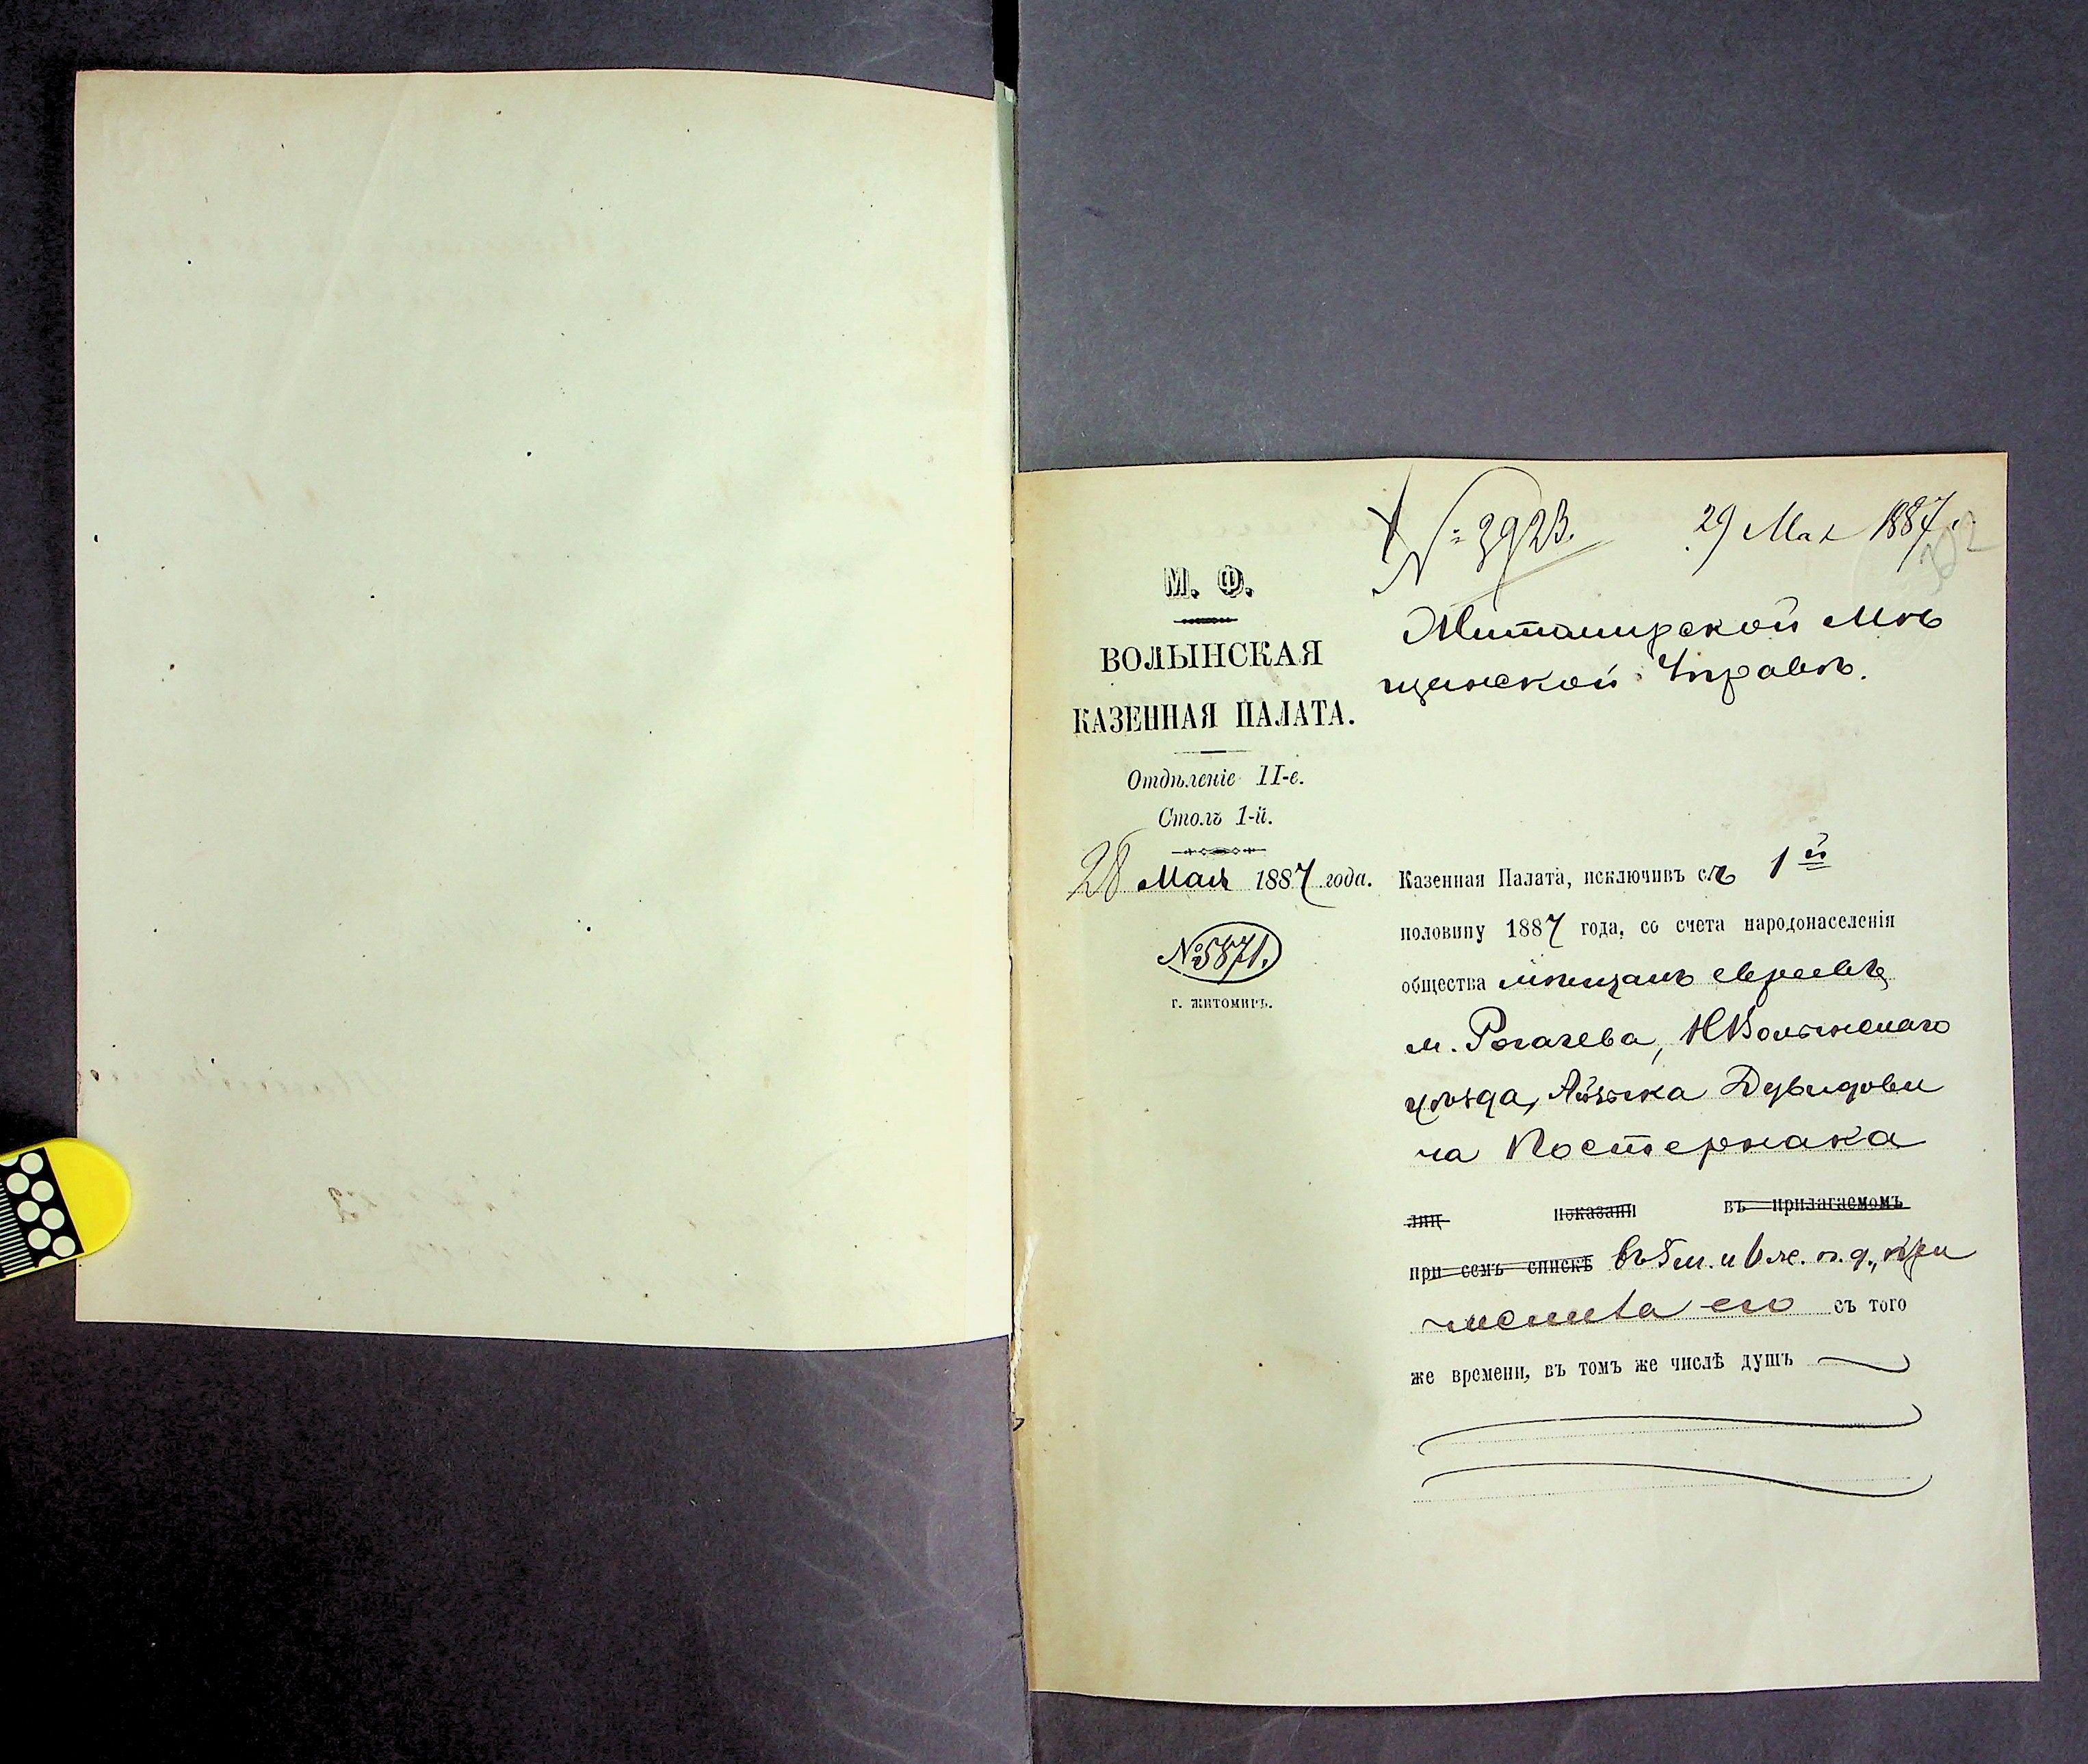 № 3923.
29 Мая 1887 г.
М. Ф.
ВОЛЫНСКАЯ
КАЗЕННАЯ ПАЛАТА.
Отдѣленіе II-е.
Столъ 1-й.
28 Мая 1887 года.
№ 5871.
г. житомиръ.
Житомирской Мѣ
щанской Управѣ.
Казенная Палата, исключивъ съ 1й
половину 1887 года, со счета народонаселенія
общества мѣщанъ евреевъ
м. Рогачева, НВолынскаго
уѣзда, Айзыка Дувидови
ча Постернака
лиц показанн въ прилагаемомъ
при семъ спискѣ въ 5 м. и 6 ж. п. д., при
числила его съ того
же времени, въ томъ же числѣ душъ